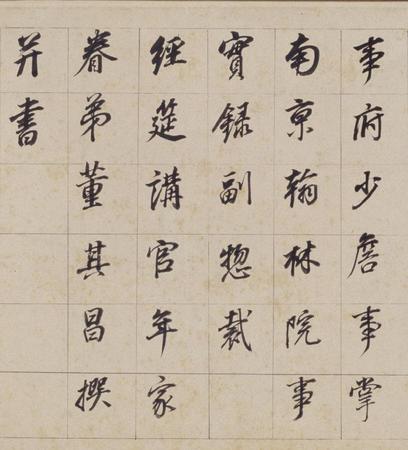 事府少詹事掌
南京翰林院事
實録副揔裁
經筵講官年家
眷弟董其昌撰
并書